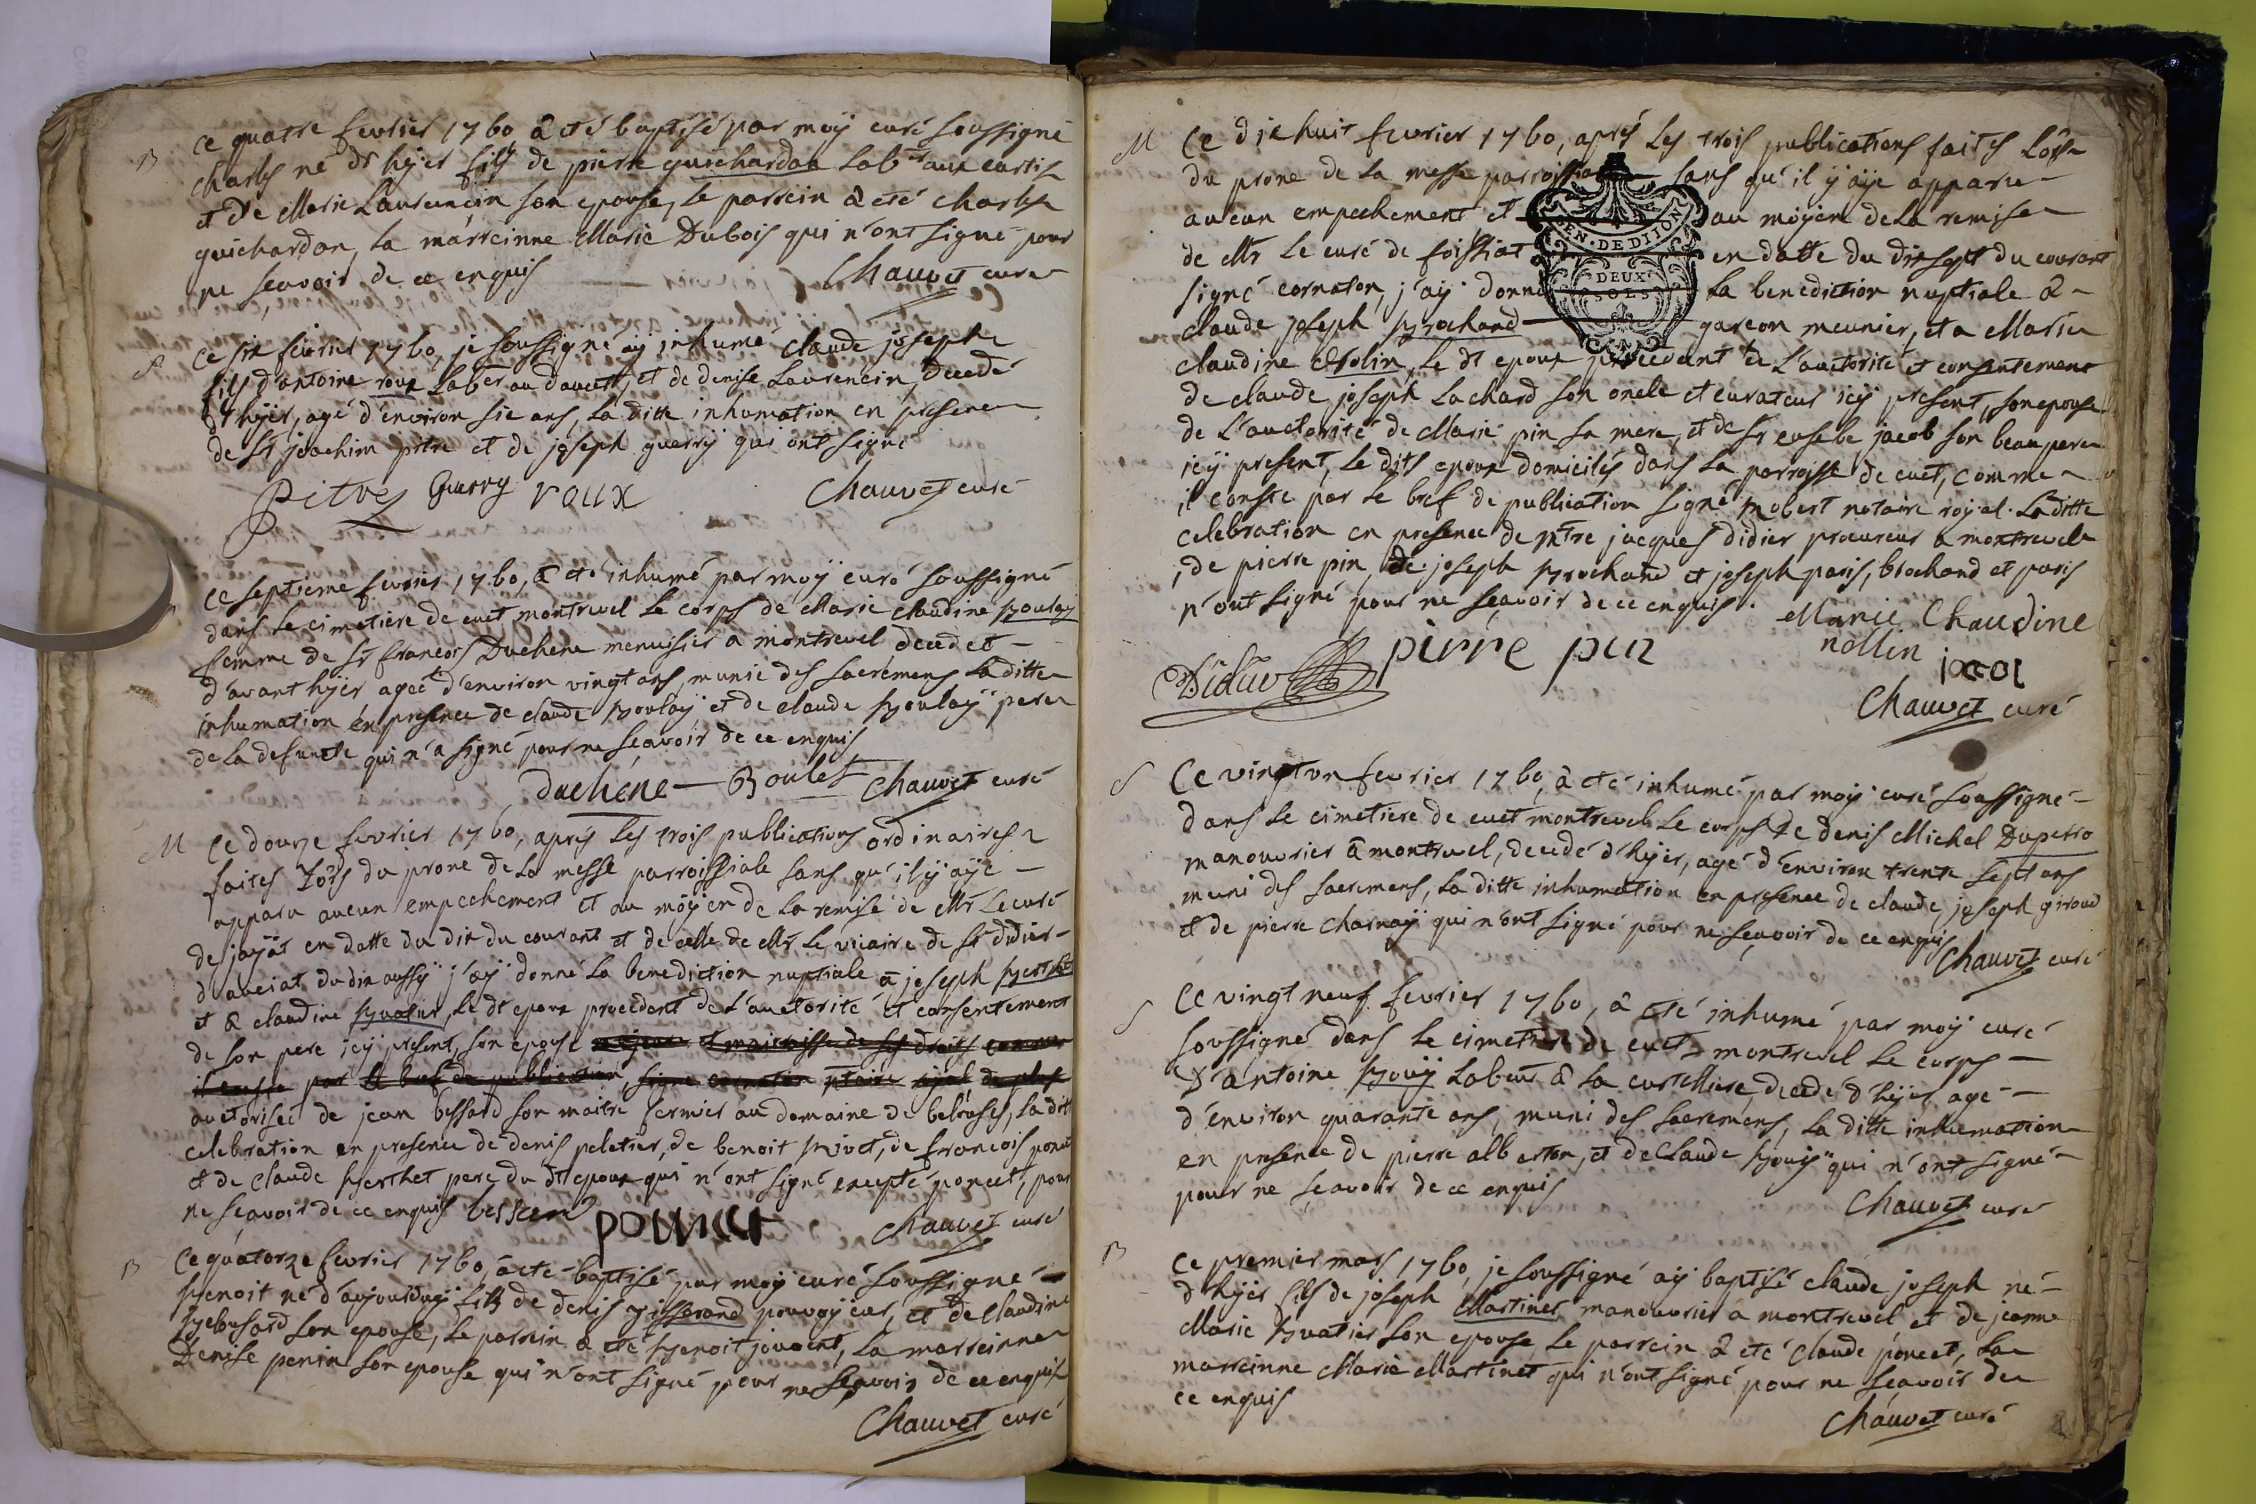 B
ce quatre fevrier 1760 a eté baptisé par moÿ curé soussigné
charles né dt hÿer fils de pierre guichardon labr aux curtis
et de Marie Laurencin son epouse, le parrein a eté charles
guichardon, la marreinne Marie Dubois qui n'ont signé pour
ne scavoir de ce enquis
Chauvet curé
S
ce six fevrier 1760, je soussigné aÿ inhumé claude joseph
fils d'antoine roux laber au daveret, et de denise Laurencin, decedé
d'hÿer, agé d'environ sie ans, la ditte inhumation en presence
de Sr joachim pitre et de joseph guerrÿ qui ont signé
Pitre Guerry roux
Chauvet curé
ce septieme fevrier 1760, a eté inhumé par moÿ curé soussigné
dans le cimetiere de cuet montrevel le corps de Marie claudine Boulaÿ
femme de Sr francois Duchene menuisier a montrevel decedet
d'avant hÿer ageé d'environ vingt ans, munie des sacremens la ditte
inhumation en presence de claude Boulaÿ et de claude Boulaÿ pere
de la defunte qui n'a signé pour ne scavoir de ce enquis
Duchêne Boulet Chauvet curé
M
ce douze fevrier 1760, apres les trois publications ordinaires
faites lors du prone de la messe parroissiale sans qu'il ÿ aÿe
apparu aucun empechement et au moÿen de la remise de Mr le curé
de jaÿat en datte du dix du courant et de celle de Mr le vicaire de St didier
d'auciat du dix aussÿ j'aÿ donné la benediction nuptiale a joseph Berthet
et a claudine Buatier, le dt epoux procedent de l'auctorité et consentement
de son pere icÿ present, son epouse majeure et maitresse de ses droits comme
il conste par le bref de publication, signé cornaton ntaire roial de plus
auctorisée de jean bessard son maitre fermier au domaine de belvoses, la dt
celebration en presence de denis peletier, de benoit nivet, de francois poncet
et de claude Berthet pere du dt epoux qui n'ont signé excepté poncet, pour
ne scavoir de ce enquis bessard poncet
Chauvet curé
B
ce quatorze fevrier 1760 a eté baptisé par moÿ curé soussigné
Benoit né d'aujourduÿ fils de denis tisserand pourvoÿeur, et de claudine
Bebusard son epouse, le parrein a eté Benoit jouvent, la marreinne
Denise penin son epouse qui n'ont signé pour ne scavoir de ce enquis
Chauvet curé
M
Ce diehuit fevrier 1760, aprés les trois publications faites lors
du prone de la messe parroissiale sans qu'il ÿ aÿe apparu
aucun empechement et au moÿen de la remise
de Mr le curé de foissiat en datte du dixsept du courant
signé cornaton, j'aÿ donné la benediction nuptiale a
claude joseph Brochand garcon meunier, et a Marie
claudine Nolin, le dt epoux procedent de l'auctorité et consentement
de claude joseph Lachard son oncle et curateur icÿ present, son epouse
de l'auctorité de Marie pin sa mere, et de Sr eusebe jacob son beau pere
icÿ present, le dits epoux domiciliés dans la parroisse de cuet, comme
il conste par le bref de publication signé Mobert notaire roÿal. la ditte
celebration en presence de Mtre jacques didier procureur a montrevel
, de pierre pin, de joseph Brochand et joseph paris, brochand et paris
n'ont signé pour ne scavoir de ce enquis.
Marie Chaudine
nollin
Didier pirre pin jacob
Chauvet curé
EN · DE DIJON
DEUX
SOLS
S
Ce vingt un fevrier 1760, a eté inhumé par moÿ curé soussigné
dans le cimetiere de cuet montrevel le corps de Denis Michel Duperro
manouvrier a montrevel, decedé d'hÿer, agé d'environ trente sept ans
muni des sacremens, la ditte inhumation en presence de claude joseph giroud
et de pierre charnaÿ qui n'ont signé pour ne scavoir de ce enquis
Chauvet curé
S
Ce vingt neuf fevrier 1760, a eté inhumé par moÿ curé
soussigné dans le cimetiere de cuet montrevel le corps
d'antoine Bouÿ laber a la curtelliere, decedé d'hÿer agé
d'environ quarante ans, muni des sacremens, la ditte inhumation
en presence de pierre alberton, et de claude Bouÿ qui n'ont signé
pour ne scavoir de ce enquis
Chauvet curé
B
ce premier mars 1760, je soussigné aÿ baptisé claude joseph né
d'hÿer fils de joseph Martinet manouvrier a montrevel et de jeanne
Marie Buatier son epouse, le parrein a eté claude poncet, la
marreinne Marie Martinet qui n'ont signé pour ne scavoir de
ce enquis
Chauvet curé